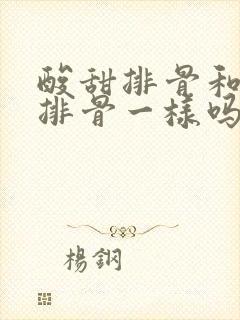 酸甜排骨和
排骨一樣嗎
楊鋼